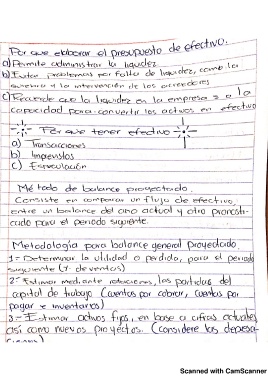 Por que elaborar el presupuesto de efectivo.
a) Permite administrar la liquidez
b) Evitar problemas por falta de liquidez, como la
y la intervención de los acreedores
c) Recuerde que la liquidez en la empresa = a la
capacidad para convertir los activos en efectivo
Por que tener efectivo
a) Transacciones
b) Imprevistos
c) Especulación
Método de balance proyectado.
Consiste en comparar un flujo de efectivo,
entre un balance del año actual y otro pronosti-
cado para el periodo siguiente.
Metodología para balance general proyectado.
1- Determinar la utilidad o perdida, para el periodo
siguiente (% de ventas)
2- Estimar mediante rotaciones, las partidas del
capital de trabajo (cuentas por cobrar, cuentas por
pagar e inventarios)
3- Estimar activos fijos, en base a cifras actuales
así como nuevos proyectos. (considere las deprea-
Scanned with CamScanner